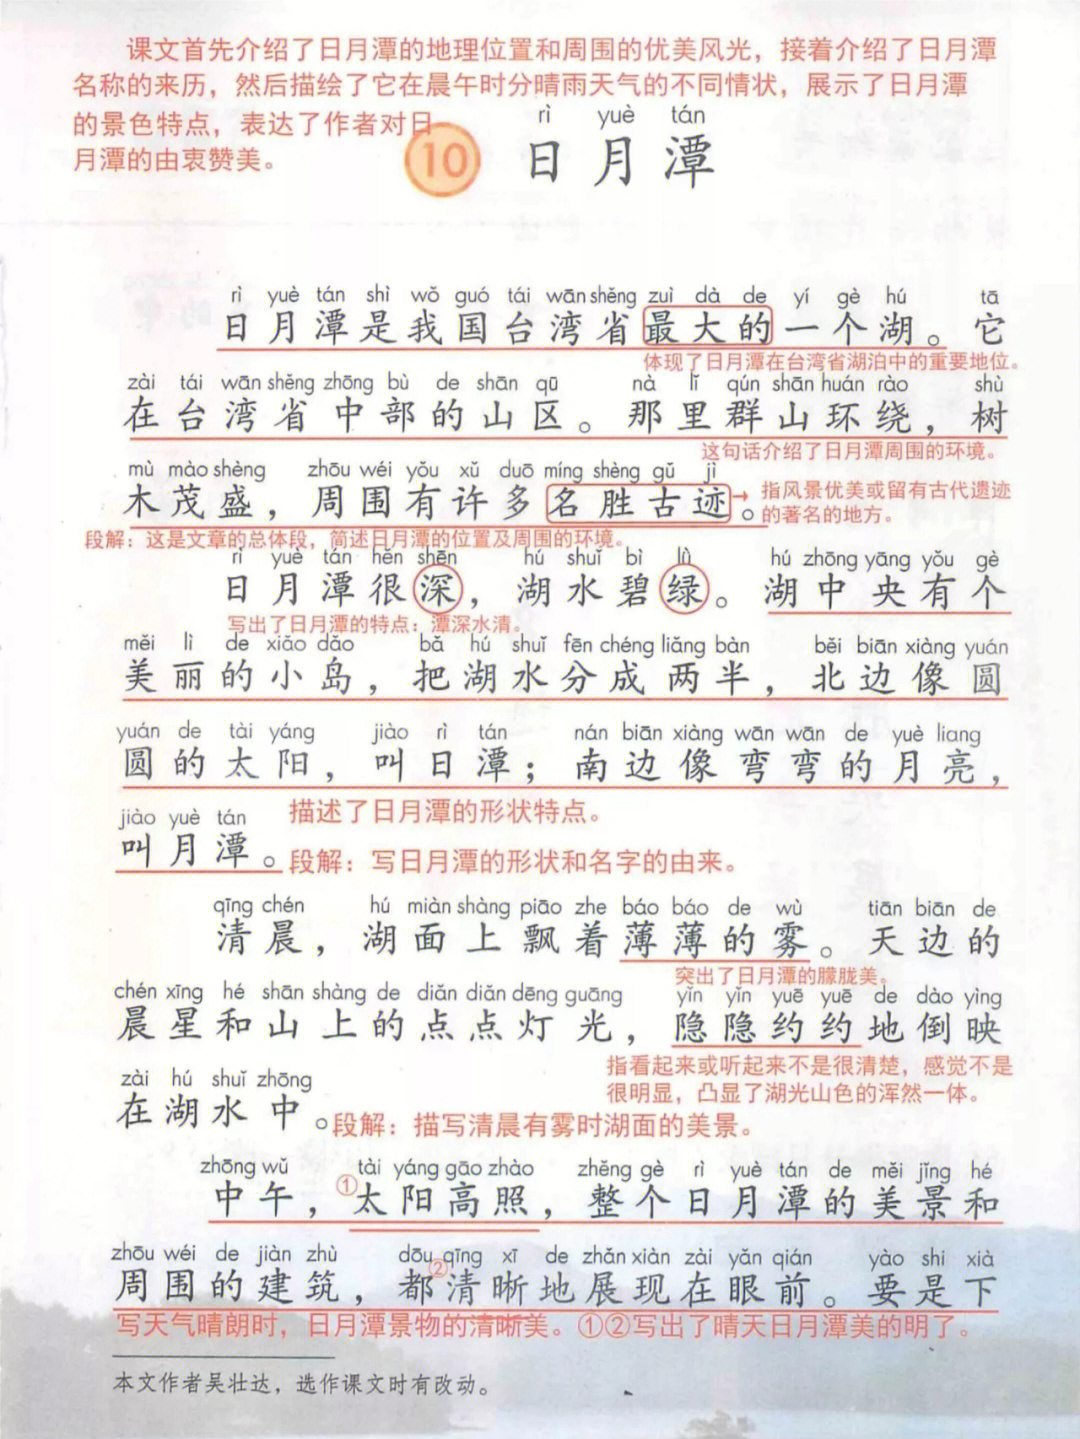 课文首先介绍了日月潭的地理位置和周围的优美风光，接着介绍了日月潭
名称的来历，然后描绘了它在晨午时分晴雨天气的不同情状，展示了日月潭
的景色特点，表达了作者对日
月潭的由衷赞美。
rì yuè tán
10 日月潭
rì yuè tán shì wǒ guó tái wān shěng zuì dà de yí gè hú tā
日月潭是我国台湾省最大的一个湖。它
体现了日月潭在台湾省湖泊中的重要地位。
zài tái wān shěng zhōng bù de shān qū nà lǐ qún shān huán rào shù
在台湾省中部的山区。那里群山环绕，树
这句话介绍了日月潭周围的环境。
mù mào shèng zhōu wéi yǒu xǔ duō míng shèng gǔ jì
木茂盛，周围有许多名胜古迹。
指风景优美或留有古代遗迹
的著名的地方。
段解：这是文章的总体段，简述日月潭的位置及周围的环境。
rì yuè tán hěn shēn hú shuǐ bì lǜ hú zhōng yāng yǒu gè
日月潭很深，湖水碧绿。湖中央有个
写出了日月潭的特点：潭深水清。
měi lì de xiǎo dǎo bǎ hú shuǐ fēn chéng liǎng bàn běi biān xiàng yuán
美丽的小岛，把湖水分成两半，北边像圆
yuán de tài yáng jiào rì tán nán biān xiàng wān wān de yuè liang
圆的太阳，叫日潭；南边像弯弯的月亮，
jiào yuè tán
描述了日月潭的形状特点。
叫月潭。
段解：写日月潭的形状和名字的由来。
qīng chén hú miàn shàng piāo zhe báo báo de wù tiān biān de
清晨，湖面上飘着薄薄的雾。天边的
突出了日月潭的朦胧美。
chén xīng hé shān shàng de diǎn diǎn dēng guāng yǐn yǐn yuē yuē de dào yìng
晨星和山上的点点灯光，隐隐约约地倒映
指看起来或听起来不是很清楚，感觉不是
很明显，凸显了湖光山色的浑然一体。
zài hú shuǐ zhōng
在湖水中。
段解：描写清晨有雾时湖面的美景。
zhōng wǔ tài yáng gāo zhào zhěng gè rì yuè tán de měi jǐng hé
中午，①太阳高照，整个日月潭的美景和
zhōu wéi de jiàn zhù dōu qīng xī de zhǎn xiàn zài yǎn qián yào shi xià
周围的建筑，都②清晰地展现在眼前。要是下
写天气晴朗时，日月潭景物的清晰美。①②写出了晴天日月潭美的明了。
本文作者吴壮达，选作课文时有改动。